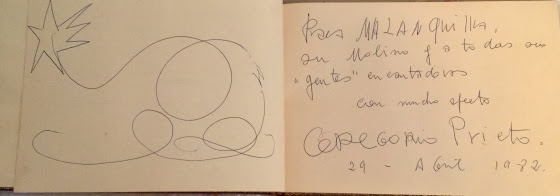 Para MALANQUILLA,
su Molino y a todas sus
"gentes" encantadoras
con mucho afecto
GREGORIO Prieto.
29 - Abril 1982.